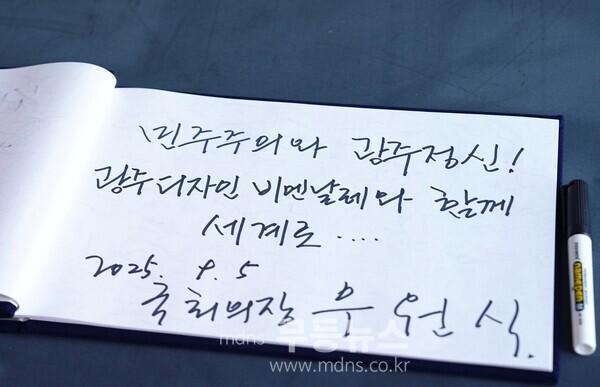 민주주의와 광주정신!
광주디자인 비엔날레와 함께
세계로....
2025. 9. 5
국회의장 우 원 식.
mdns 무등뉴스
www.mdns.co.kr